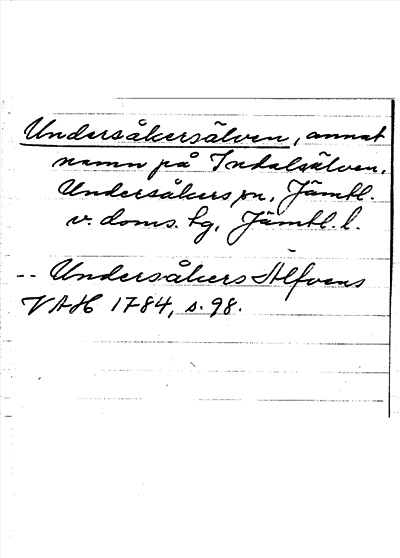 Undersåkersälven, annat
namn på Indalsälven,
Undersåkers sn, Jämtl.
v. doms. tg, Jämtl. l.
-- Undersåkers Älfvens
VAH 1784, s. 98.